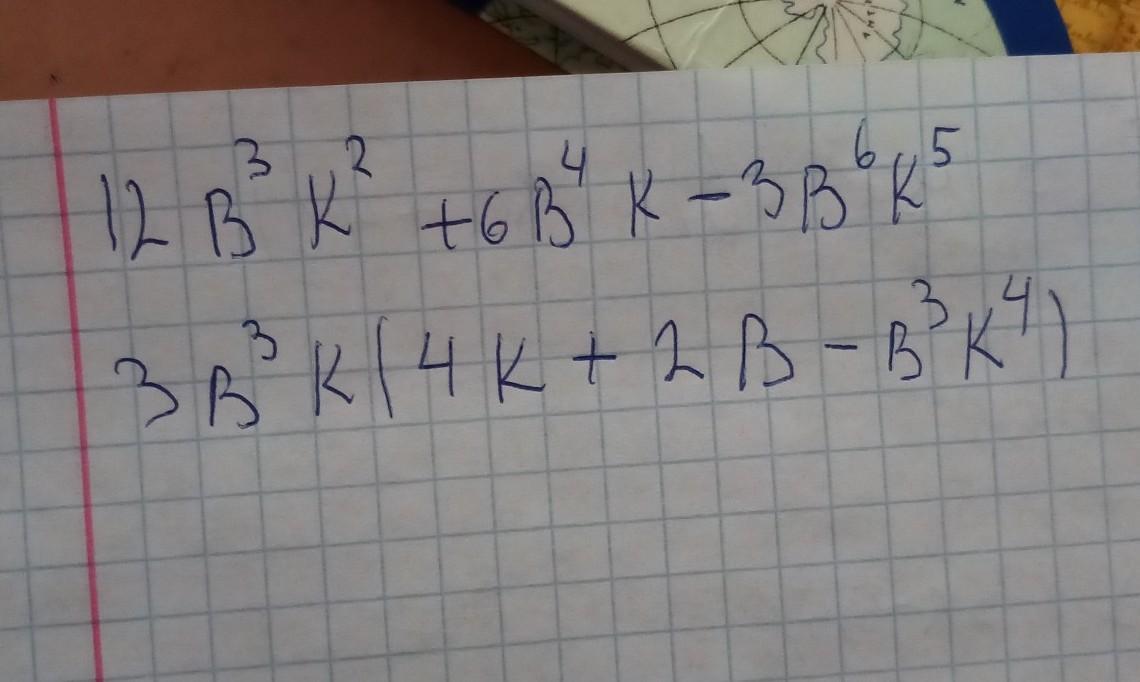 12 B³ K² + 6 B⁴ K − 3 B⁶ K⁵
3 B³ K ( 4 K + 2 B − B³ K⁴ )